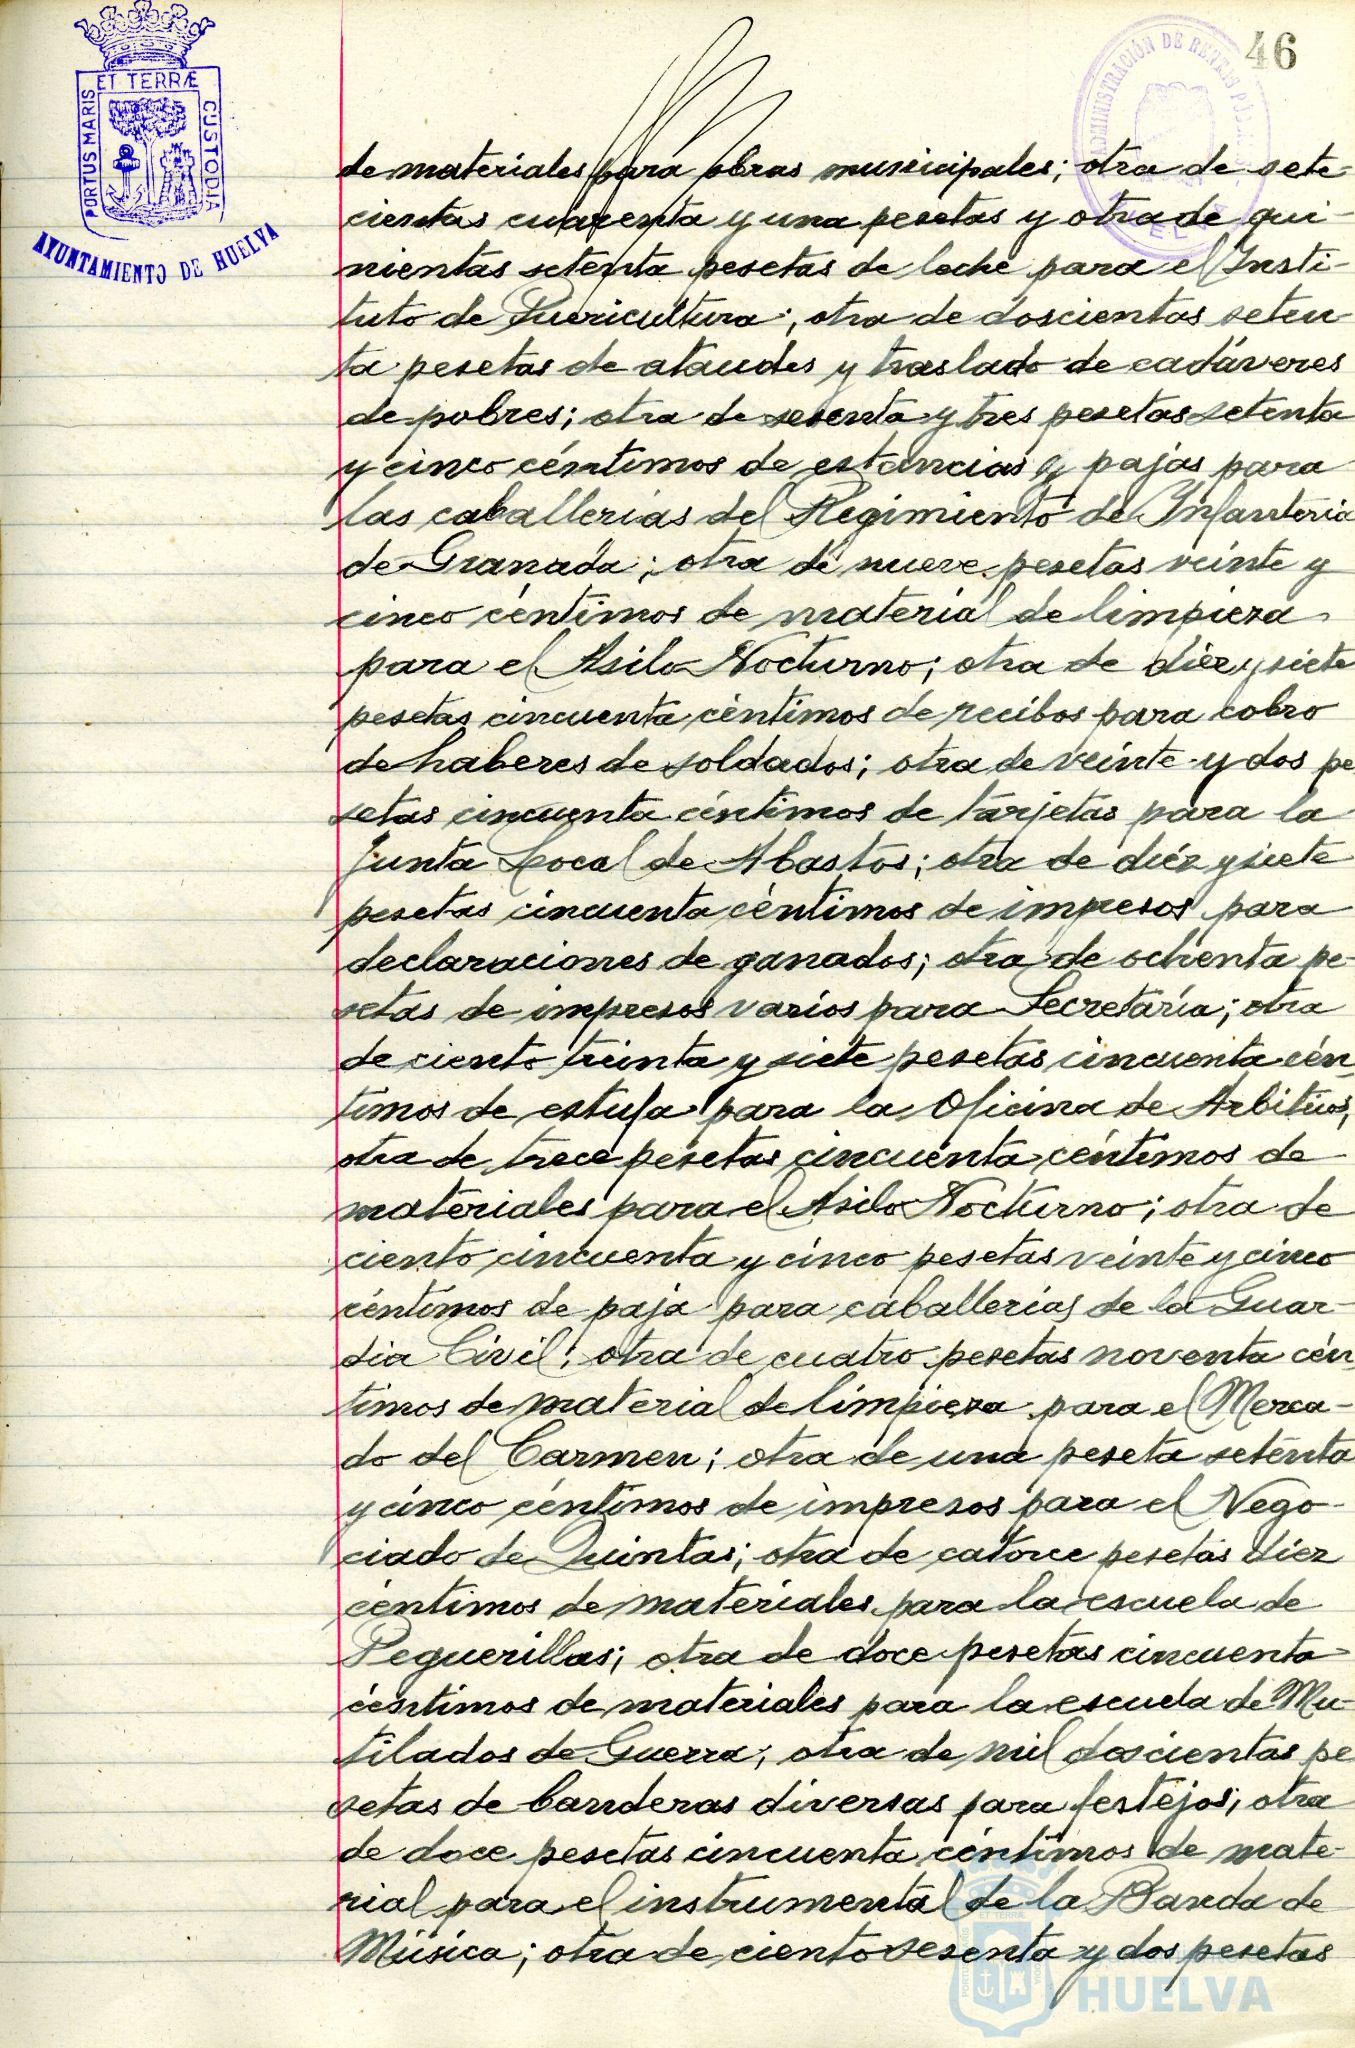 46
PORTUS MARIS ET TERRÆ CUSTODIA
AYUNTAMIENTO DE HUELVA
ADMINISTRACIÓN DE RENTAS PÚBLICAS
HUELVA
de materiales para obras municipales; otra de sete-
cientas cuarenta y una pesetas y otra de qui-
nientas setenta pesetas de leche para el Insti-
tuto de Puericultura; otra de doscientas seten
ta pesetas de ataudes y traslado de cadáveres
de pobres; otra de sesenta y tres pesetas setenta
y cinco céntimos de estancias y pajas para
las caballerías del Regimiento de Infanteria
de Granada; otra de nueve pesetas veinte y
cinco céntimos de material de limpieza
para el Asilo Nocturno; otra de diez y siete
pesetas cincuenta céntimos de recibos para cobro
de haberes de soldados; otra de veinte y dos pe
setas cincuenta céntimos de tarjetas para la
Junta Local de Abastos; otra de diéz y siete
pesetas cincuenta céntimos de impresos para
declaraciones de ganados; otra de ochenta pe-
setas de impresos varios para Secretaría; otra
de ciento treinta y siete pesetas cincuenta cén
timos de estufa para la Oficina de Arbitrios,
otra de trece pesetas cincuenta céntimos de
materiales para el Asilo Nocturno; otra de
ciento cincuenta y cinco pesetas veinte y cinco
céntimos de paja para caballerias de la Guar-
dia Civil; otra de cuatro pesetas noventa cén
timos de material de limpieza para el Merca-
do del Carmen; otra de una peseta setenta
y cinco céntimos de impresos para el Nego-
ciado de Quintas; otra de catorce pesetas diez
céntimos de materiales para la escuela de
Peguerillas; otra de doce pesetas cincuenta
céntimos de materiales para la escuela de Mu-
tilados de Guerra; otra de mil doscientas pe
setas de banderas diversas para festejos; otra
de doce pesetas cincuenta céntimos de mate-
rial para el instrumental de la Banda de
Música; otra de ciento sesenta y dos pesetas
HUELVA